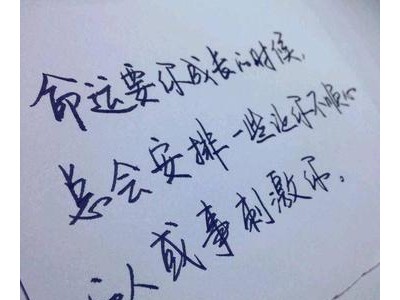 命运要你成长的时候，
总会安排一些让你不顺心
的人或事刺激你．